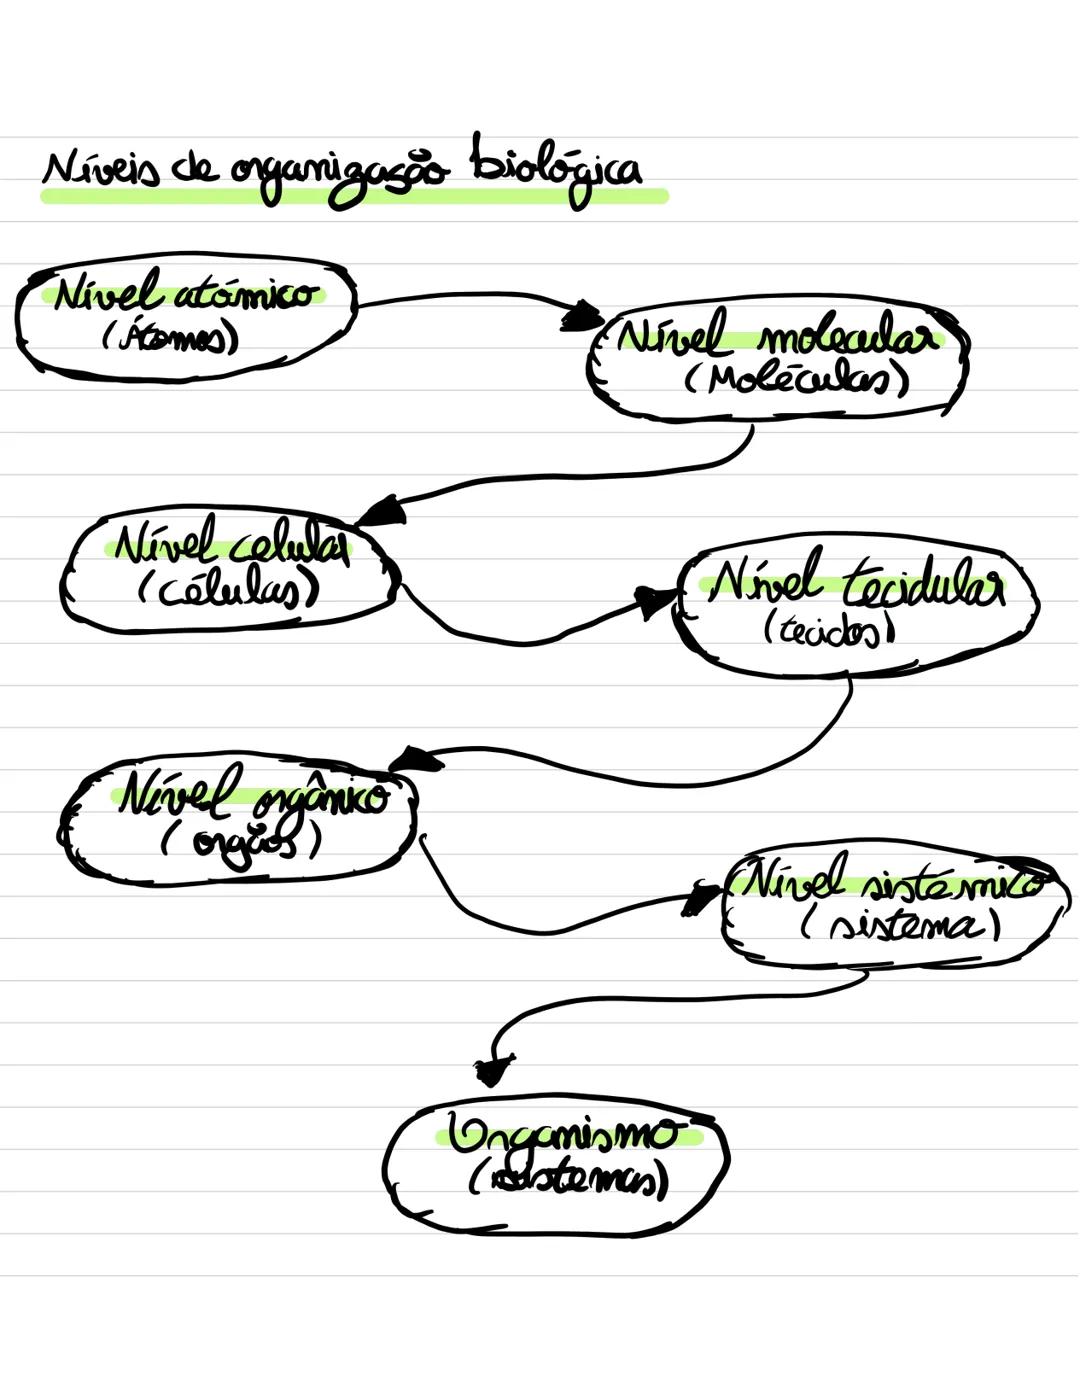 Níveis de organização biológica
Nível atómico
(Átomos)
Nível molecular
(Moléculas)
Nível celular
(células)
Nível tecidular
(tecidos)
Nível orgânico
(orgãos)
Nível sistémico
(sistema)
Organismo
(sistemas)